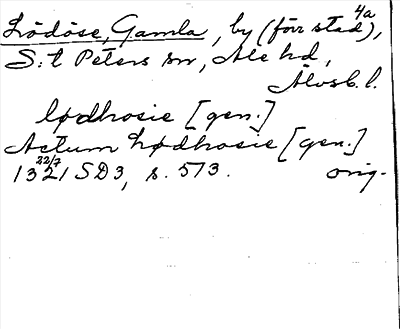 4a
Lödöse, Gamla, by (förr stad),
S:t Peters sn, Ale hd,
Älvsb. l.
lødhosie [gen.]
Actum Lødhosie [gen.]
22/7
1321 SD3, s. 573. orig.